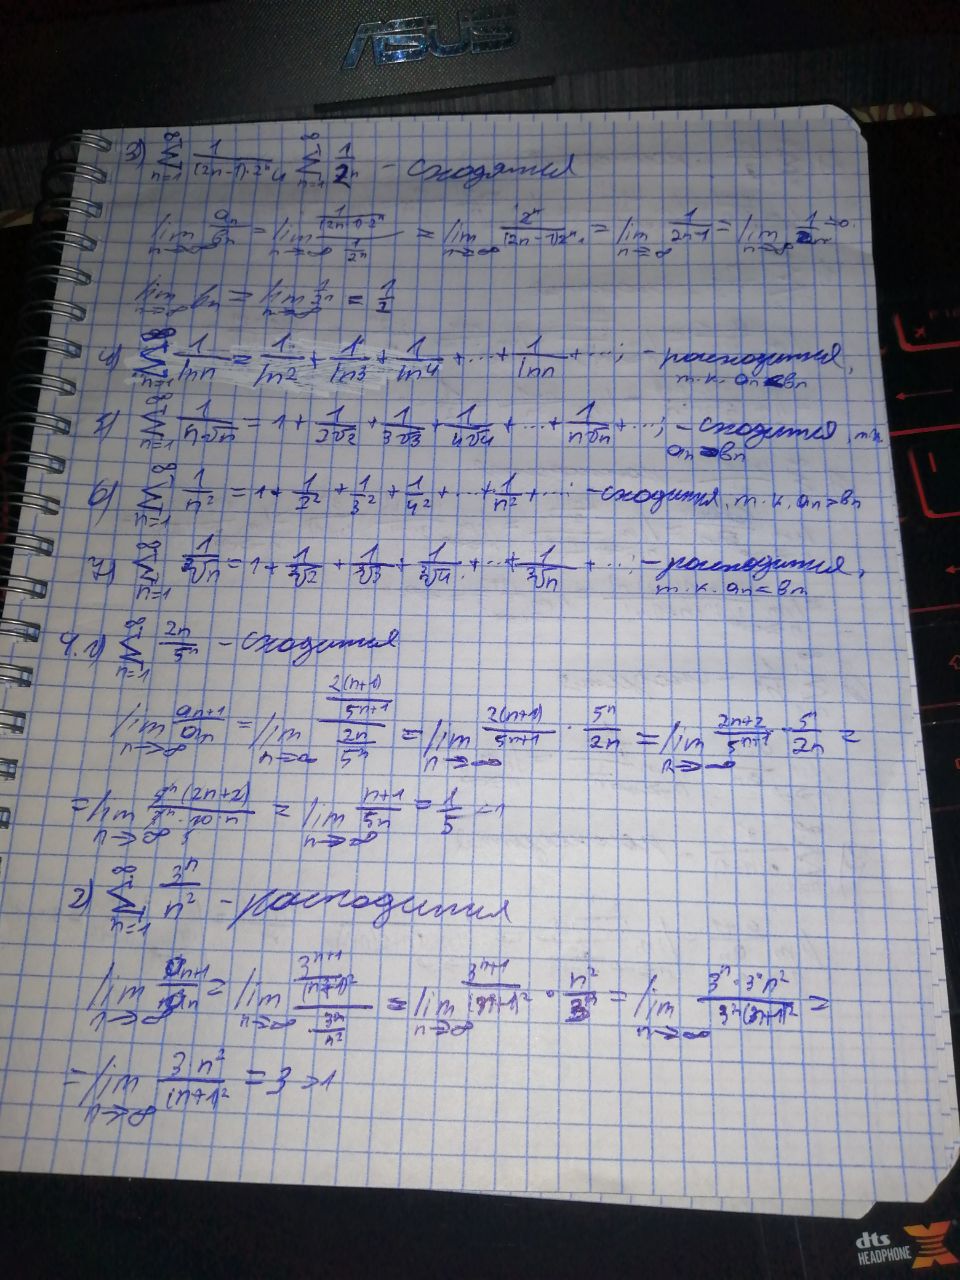 ASUS
3) ∑_{n=1}^{∞} 1/((2n-1)·2ⁿ) и ∑_{n=1}^{∞} 1/2ⁿ - сходятся
lim_{n→∞} aₙ/bₙ = lim_{n→∞} (1/((2n-1)·2ⁿ))/(1/2ⁿ) = lim_{n→∞} 2ⁿ/((2n-1)2ⁿ) = lim_{n→∞} 1/(2n-1) = lim_{n→∞} 1/2n = 0
lim_{n→∞} bₙ = lim_{n→∞} 1/2ⁿ = 1/2
4) ∑_{n=1}^{∞} 1/ln n = 1/ln2 + 1/ln3 + 1/ln4 + ... + 1/ln n + ...; - расходится,
т.к. aₙ < bₙ
5) ∑_{n=1}^{∞} 1/(n√n) = 1 + 1/(2√2) + 1/(3√3) + 1/(4√4) + ... + 1/(n√n) + ...; - сходится, т.к
aₙ bₙ
6) ∑_{n=1}^{∞} 1/n² = 1 + 1/2² + 1/3² + 1/4² + ... + 1/n² + ...; - сходится, т.к. aₙ > bₙ
7) ∑_{n=1}^{∞} 1/∛n = 1 + 1/∛2 + 1/∛3 + 1/∛4 + ... + 1/∛n + ...; - расходится,
т.к. aₙ < bₙ
4.1) ∑_{n=1}^{∞} 2n/5ⁿ - сходится
lim_{n→∞} aₙ₊₁/aₙ = lim_{n→∞} (2(n+1)/5ⁿ⁺¹)/(2n/5ⁿ) = lim_{n→∞} 2(n+1)/5ⁿ⁺¹ · 5ⁿ/2n = lim_{n→∞} (2n+2)/5ⁿ⁺¹ · 5ⁿ/2n =
= lim_{n→∞} 5ⁿ(2n+2)/(5ⁿ·10·n) = lim_{n→∞} (n+1)/5n = 1/5 < 1
2) ∑_{n=1}^{∞} 3ⁿ/n² - расходится
lim_{n→∞} aₙ₊₁/aₙ = lim_{n→∞} (3ⁿ⁺¹/(n+1)²)/(3ⁿ/n²) = lim_{n→∞} 3ⁿ⁺¹/(n+1)² · n²/3ⁿ = lim_{n→∞} 3ⁿ·3·n²/(3ⁿ(n+1)²) =
= lim_{n→∞} 3n²/(n+1)² = 3 > 1
dts
HEADPHONE X